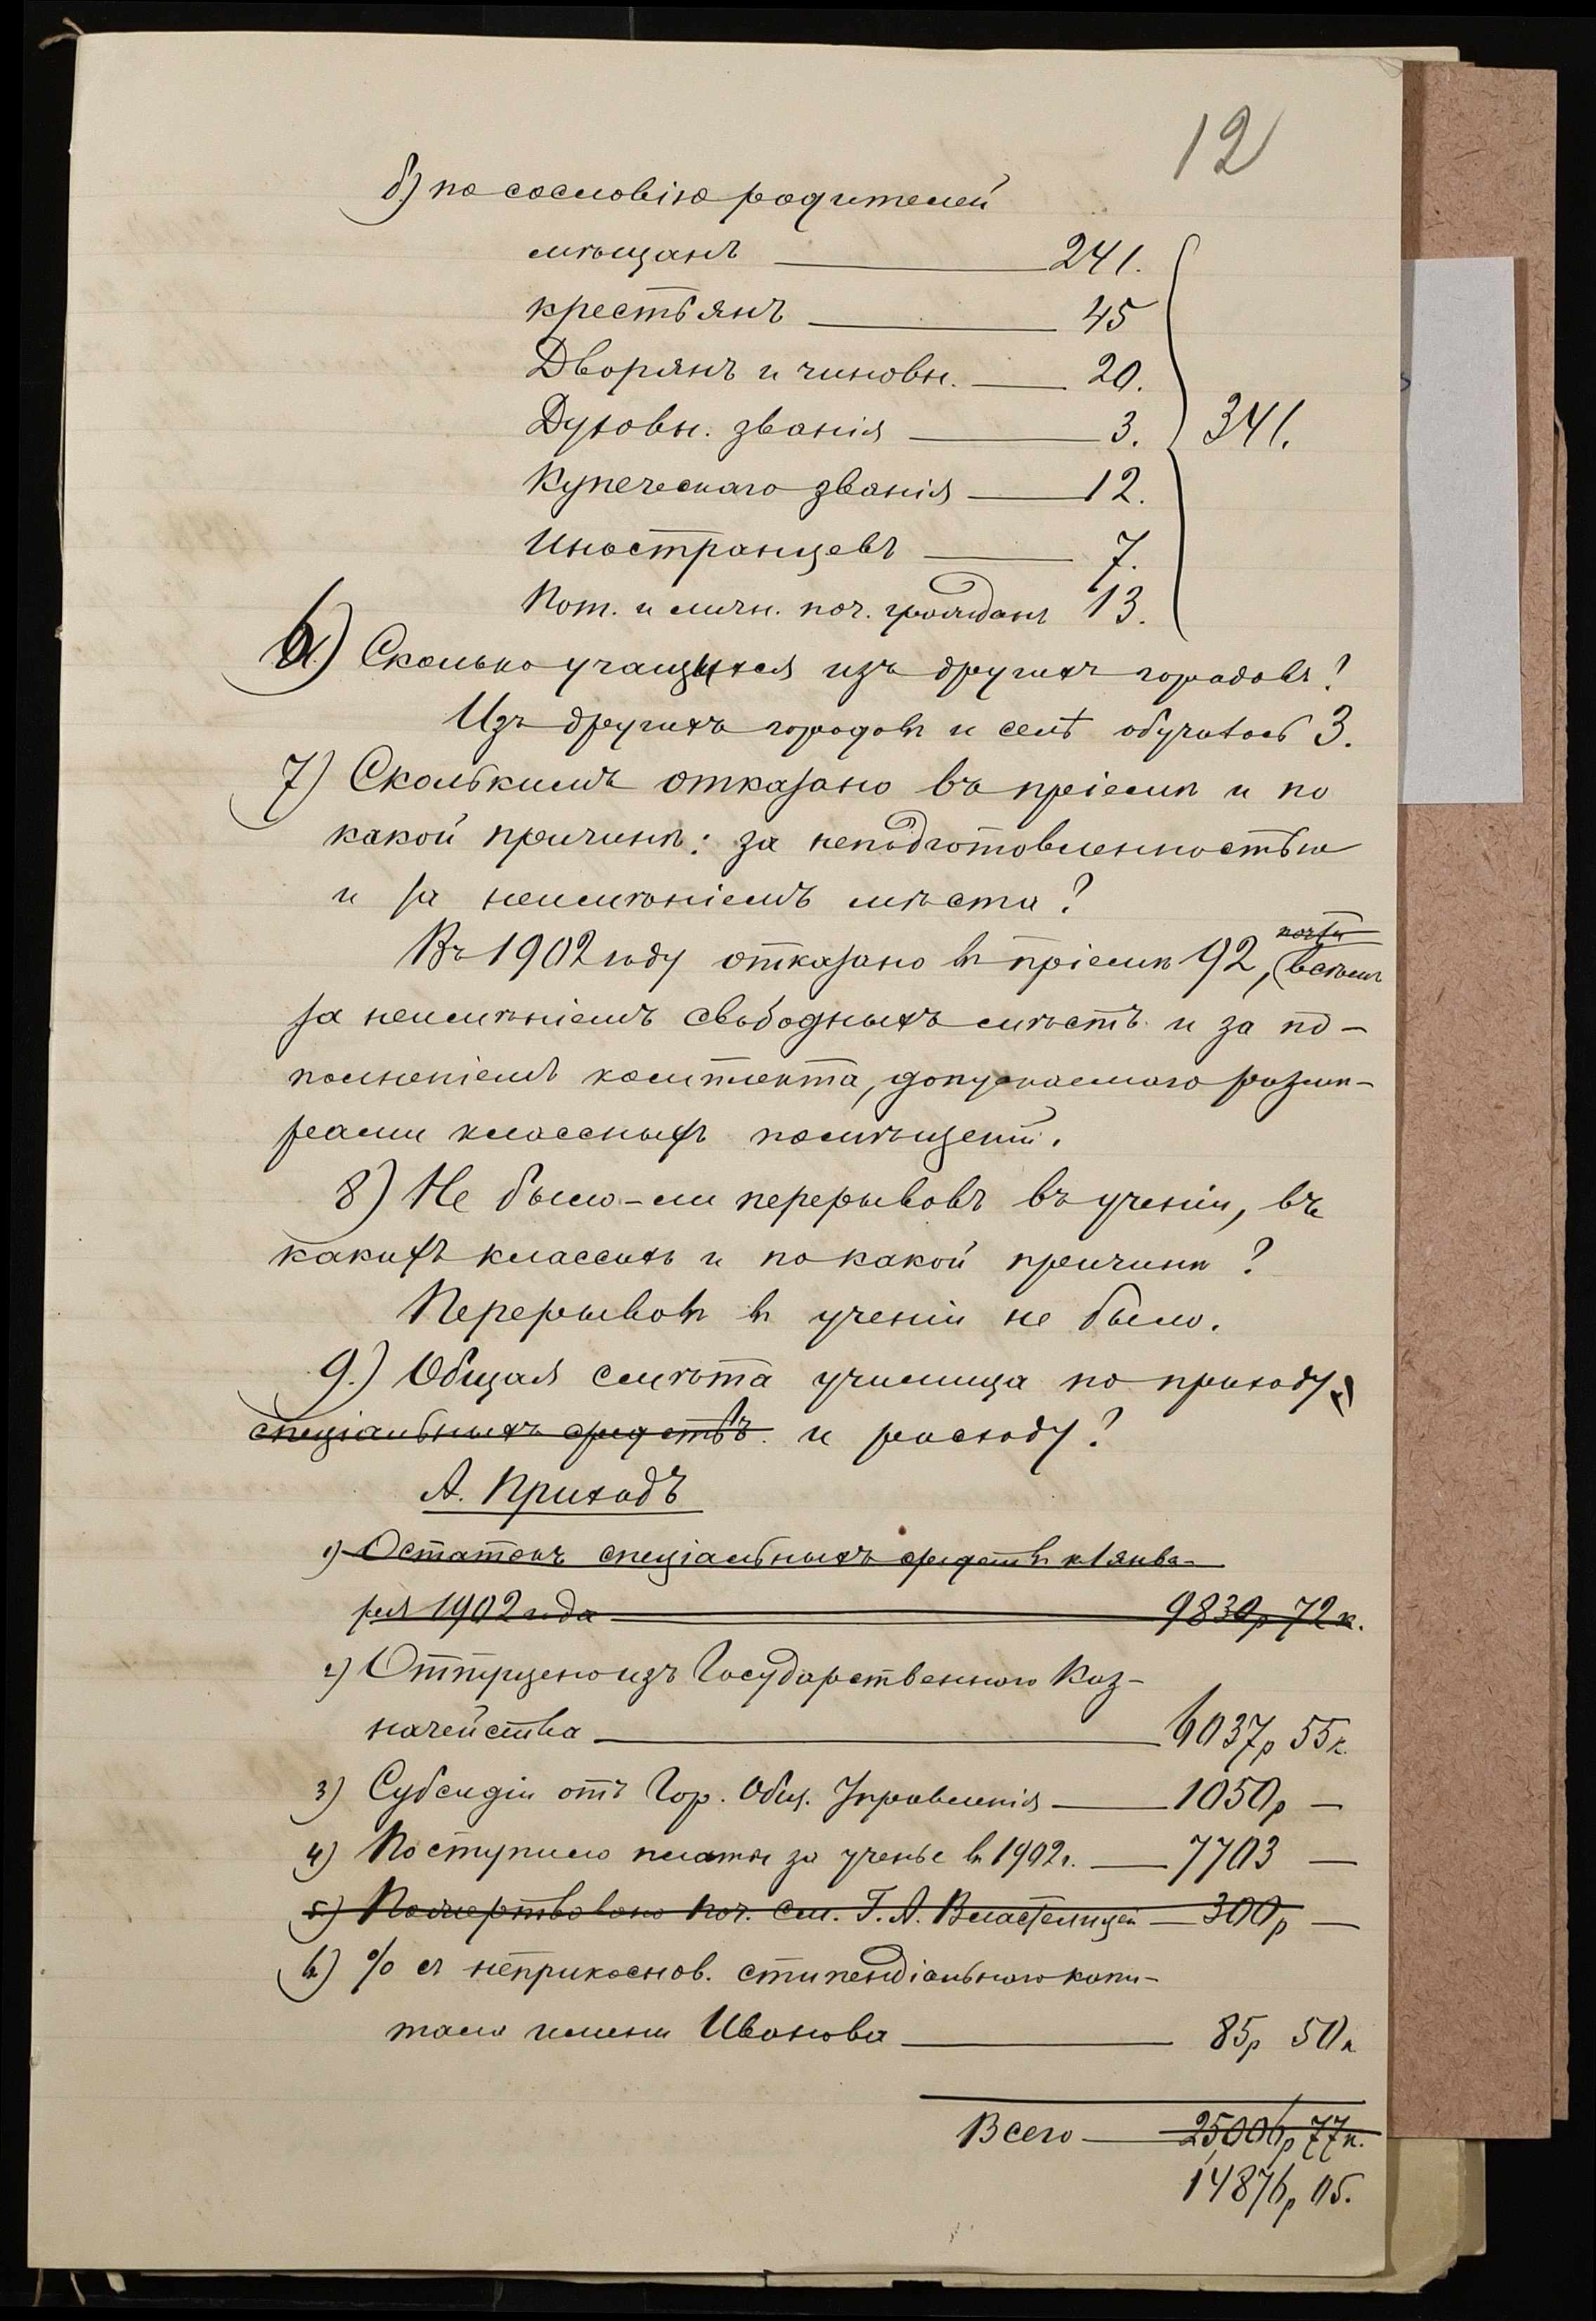 12
б) по сословію родителей
мѣщанъ 241.
крестьянъ 45
Дворянъ и чиновн. 20.
Духовн. званія 3. 341.
Купеческаго званія 12.
Иностранцевъ 7.
Пот. и личн. поч. граждан 13.
6) Сколько учащихся изъ другихъ городовъ?
Изъ другихъ городовъ и селъ обучалось 3.
7) Сколькимъ отказано въ пріемѣ и по
какой причинѣ: за неподготовленностью
и за неимѣніемъ мѣста?
почти
Въ 1902 году отказано въ пріемѣ 92, (всѣмъ
за неимѣніемъ свободныхъ мѣстъ и за по-
полненіемъ комплекта, допускаемаго размѣ-
рами классныхъ помѣщеній.
8) Не было-ли перерывовъ въ ученіи, въ
какихъ классахъ и по какой причинѣ?
Перерывовъ въ ученіи не было.
9.) Общая смѣта училища по приходу
спеціальныхъ средствъ и расходу?
А. Приходъ
1) Остатокъ спеціальныхъ средствъ к 1 янва-
ря 1902 года 9830р 72к.
2) Отпущено изъ Государственного Каз-
начейства 6037р 55к.
3) Субсидіи отъ Гор. Общ. Управленія 1050р —
4) Поступило платы за ученье въ 1902г. 7703 —
5.) Пожертвовано поч. см. Г. А. Властелицей 300р —
6) % съ неприкоснов. стипендіального капи-
тала имени Иванова 85р 50к
Всего 25,006р 77к.
14876р 05.